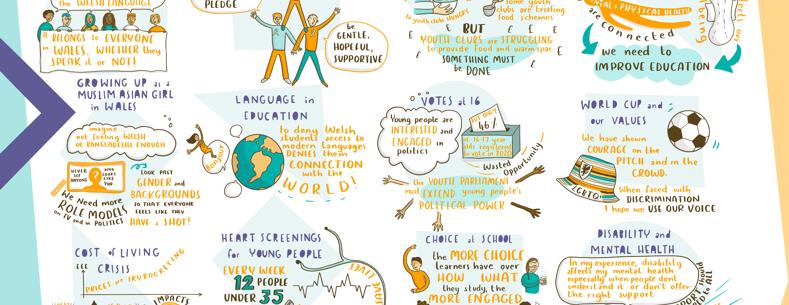 the WELSH LANGUAGE
IT BELONGS to EVERYONE
in WALES, WHETHER they
SPEAK it or NOT!
PLEDGE
be
GENTLE,
HOPEFUL,
SUPPORTIVE
some youth
clubs are trialing
food schemes
BUT
YOUTH CLUBS are STRUGGLING
to provide food and warm space
SOMETHING MUST
be DONE
£ £ £ £
& PHYSICAL HEALTH
are connected
we need to
IMPROVE EDUCATION
GROWING UP as a
MUSLIM ASIAN GIRL
in WALES
imagine...
not feeling WELSH
or BANGLADESHI ENOUGH
NEVER SEE ANYONE
WHO LOOKS LIKE YOU
We Need more
ROLE MODELS
on TV and in POLITICS
LOOK PAST
GENDER and
BACKGROUNDS
SO THAT EVERYONE
FEELS LIKE THEY
HAVE a SHOT!
LANGUAGE in
EDUCATION
BONJOUR
to deny Welsh
students access to
modern Languages
DENIES them
CONNECTION
with the
WORLD!
VOTES at 16
Young people are
INTERESTED and
ENGAGED in
politics
BUT ONLY
46%
of 16-17 year
olds registered
to vote in 2021
Wasted Opportunity
the YOUTH PARLIAMENT
MUST EXTEND young people's
POLITICAL POWER
WORLD CUP and
our VALUES
We have shown
COURAGE on the
PITCH and in the
CROWD.
LGBTQ+
When faced with
DISCRIMINATION
I hope we USE OUR VOICE
COST of LIVING
CRISIS
£££
PRICES are SKYROCKETING
IMPACTS
HEART SCREENINGS
for YOUNG PEOPLE
EVERY WEEK
12 PEOPLE
UNDER 35
SAVE LIVES
CHOICE at SCHOOL
the MORE CHOICE
learners have over
HOW WHAT
they study, the
MORE ENGAGED
DISABILITY and
MENTAL HEALTH
In my experience, disability
affects my mental health
especially when people dont
understand it or don't offer
the right support